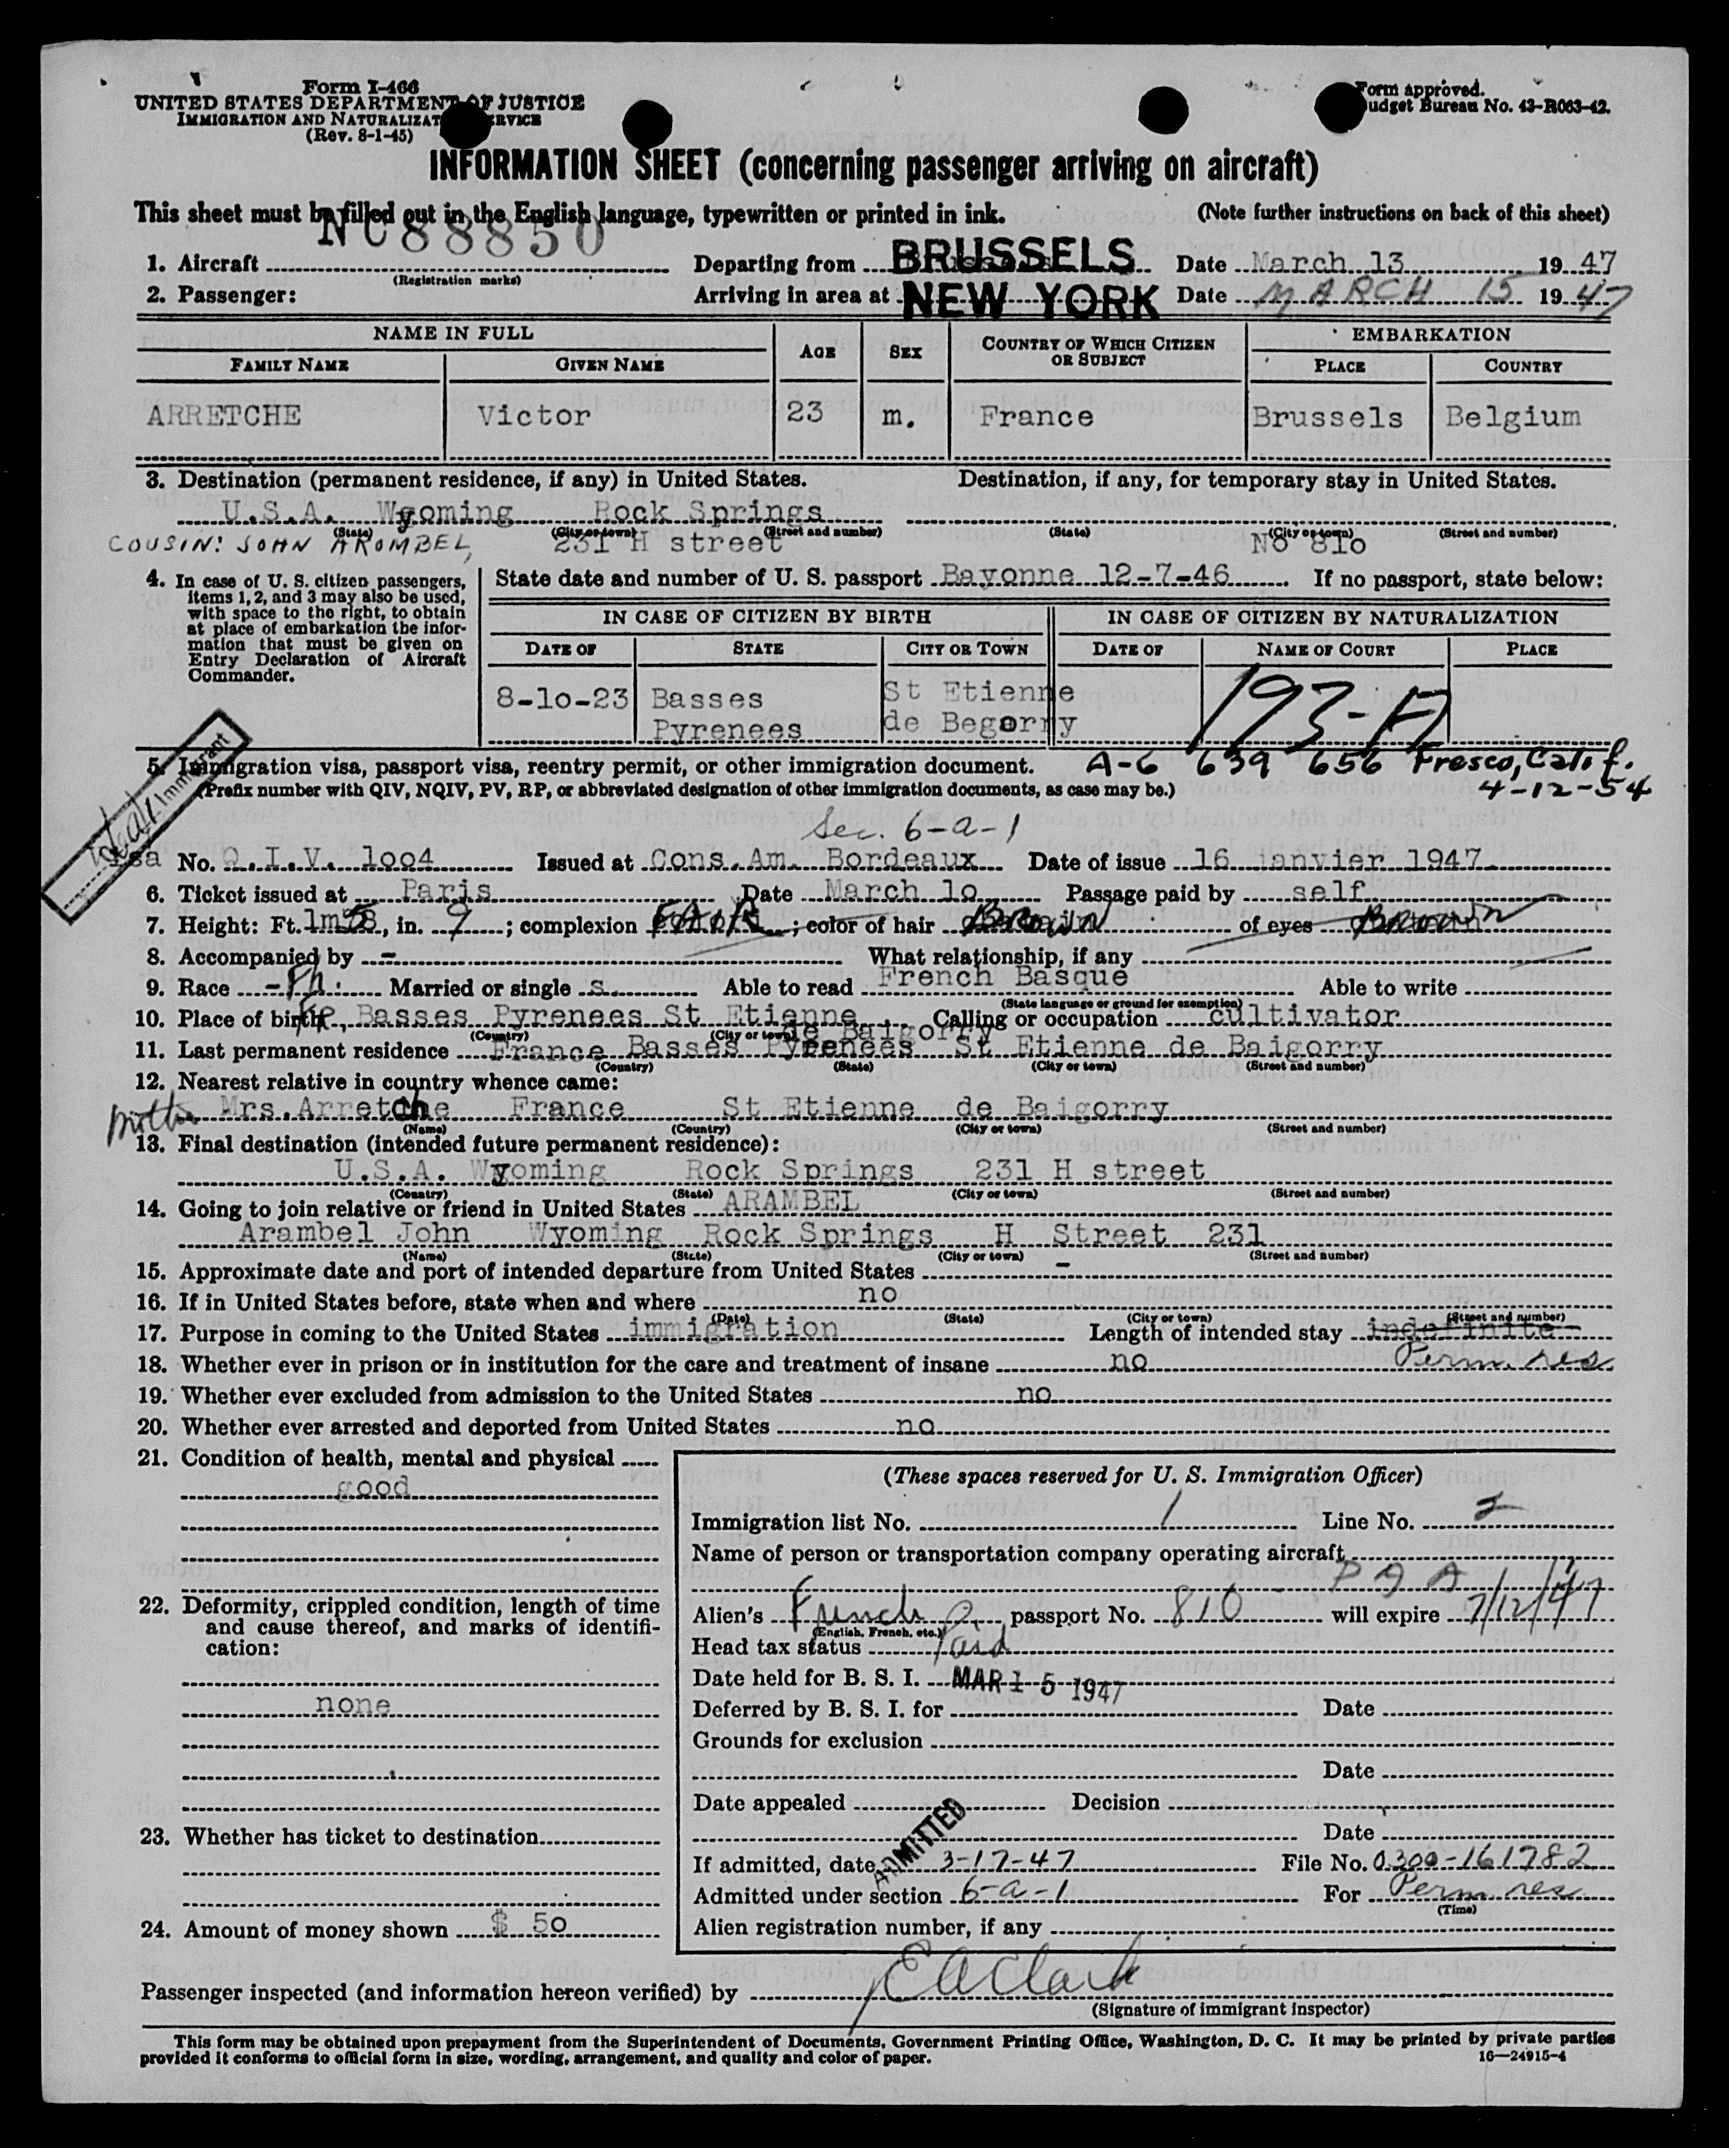 Form I-466
UNITED STATES DEPARTMENT OF JUSTICE
IMMIGRATION AND NATURALIZATION SERVICE
(Rev. 8-1-45)
Form approved.
Budget Bureau No. 43-R063-42.
INFORMATION SHEET (concerning passenger arriving on aircraft)
This sheet must be filled out in the English language, typewritten or printed in ink. (Note further instructions on back of this sheet)
NC88850
1. Aircraft Departing from BRUSSELS Date March 13 1947
(Registration marks)
2. Passenger: Arriving in area at NEW YORK Date MARCH 15 1947
NAME IN FULL AGE SEX COUNTRY OF WHICH CITIZEN OR SUBJECT EMBARKATION
FAMILY NAME GIVEN NAME PLACE COUNTRY
ARRETCHE Victor 23 m. France Brussels Belgium
3. Destination (permanent residence, if any) in United States. Destination, if any, for temporary stay in United States.
U.S.A. Wyoming Rock Springs
(State) (City or town) (Street and number) (State) (City or town) (Street and number)
COUSIN: JOHN AROMBEL, 231 H street No 810
4. In case of U. S. citizen passengers, items 1, 2, and 3 may also be used, with space to the right, to obtain at place of embarkation the information that must be given on Entry Declaration of Aircraft Commander.
State date and number of U. S. passport Bayonne 12-7-46 If no passport, state below:
IN CASE OF CITIZEN BY BIRTH IN CASE OF CITIZEN BY NATURALIZATION
DATE OF STATE CITY OR TOWN DATE OF NAME OF COURT PLACE
8-10-23 Basses Pyrenees St Etienne de Begorry
193-A
A-6 639 656 Fresco, Calif.
4-12-54
5. Immigration visa, passport visa, reentry permit, or other immigration document.
(Prefix number with QIV, NQIV, PV, RP, or abbreviated designation of other immigration documents, as case may be.)
Immigrant
Sec. 6-a-1
Visa No. Q.I.V. 1004 Issued at Cons. Am. Bordeaux Date of issue 16 janvier 1947
6. Ticket issued at Paris Date March 10 Passage paid by self
7. Height: Ft. 5, in. 9; complexion FAIR; color of hair BROWN of eyes BROWN
8. Accompanied by - What relationship, if any
9. Race - Fh. Married or single s. Able to read French Basque Able to write
(State language or ground for exemption)
10. Place of birth Fr., Basses Pyrenees St Etienne de Baigorry Calling or occupation cultivator
(Country) (City or town)
11. Last permanent residence France Basses Pyrenees St Etienne de Baigorry
(Country) (State) (City or town) (Street and number)
12. Nearest relative in country whence came:
Mother Mrs. Arretche France St Etienne de Baigorry
(Name) (Country) (City or town) (Street and number)
13. Final destination (intended future permanent residence):
U.S.A. Wyoming Rock Springs 231 H street
(Country) (State) (City or town) (Street and number)
14. Going to join relative or friend in United States ARAMBEL
Arambel John Wyoming Rock Springs H Street 231
(Name) (State) (City or town) (Street and number)
15. Approximate date and port of intended departure from United States -
16. If in United States before, state when and where no
(Date) (State) (City or town) (Street and number)
17. Purpose in coming to the United States immigration Length of intended stay indefinite
18. Whether ever in prison or in institution for the care and treatment of insane no Perm. res.
19. Whether ever excluded from admission to the United States no
20. Whether ever arrested and deported from United States no
21. Condition of health, mental and physical
good
22. Deformity, crippled condition, length of time and cause thereof, and marks of identification:
none
23. Whether has ticket to destination
24. Amount of money shown $ 50
(These spaces reserved for U. S. Immigration Officer)
Immigration list No. 1 Line No. 2
Name of person or transportation company operating aircraft
P A A
Alien's French passport No. 810 will expire 7/12/47
(English, French, etc.)
Head tax status Paid
Date held for B. S. I. MAR 15 1947
Deferred by B. S. I. for Date
Grounds for exclusion
Date
Date appealed Decision
Date
ADMITTED
If admitted, date 3-17-47 File No. 0300-161782
Admitted under section 6-a-1 For Perm. res
(Time)
Alien registration number, if any
Passenger inspected (and information hereon verified) by E A Clark
(Signature of immigrant inspector)
This form may be obtained upon prepayment from the Superintendent of Documents, Government Printing Office, Washington, D. C. It may be printed by private parties
provided it conforms to official form in size, wording, arrangement, and quality and color of paper. 16—24915-4